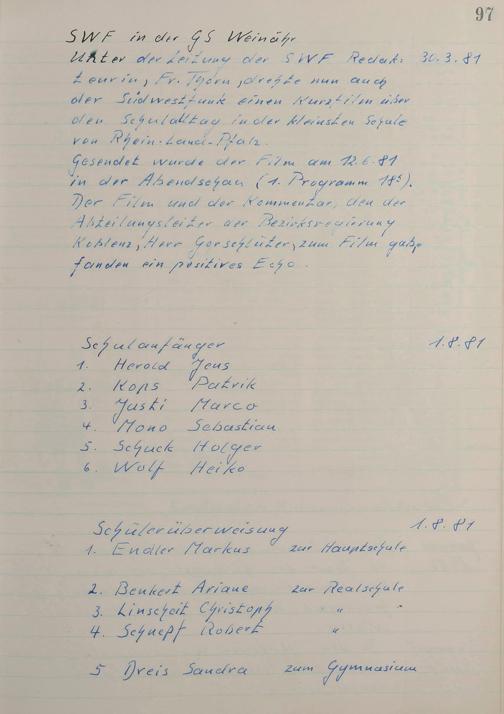 97
SWF in der GS Weinähr
Unter der Leitung der SWF Redak- 30.3.81
teurin, Fr. Thorn, drehte nun auch
der Südwestfunk einen Kurzfilm über
den Schulalltag in der kleinsten Schule
von Rhein-Land-Pfalz.
Gesendet wurde der Film am 12.6.81
in der Abendschau (1. Programm 18⁵).
Der Film und der Kommentar, den der
Abteilungsleiter der Bezirksregierung
Koblenz, Herr Gorschlüter, zum Film gab,
fanden ein positives Echo.
Schulanfänger 1.8.81
1. Herold Jens
2. Kops Patrik
3. Justi Marco
4. Mono Sebastian
5. Schuck Holger
6. Wolf Heiko
Schülerüberweisung 1.8.81
1. Endler Markus zur Hauptschule
2. Benkert Ariane zur Realschule
3. Linscheit Christoph "
4. Schnepf Robert "
5 Dreis Sandra zum Gymnasium